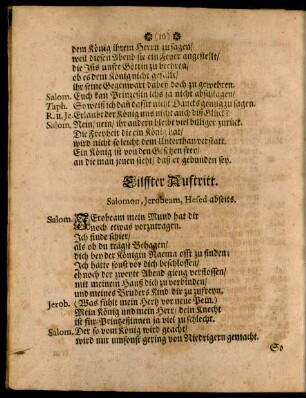 (10)
dem König ihrem Herrn zu sagen/
weil diesen Abend sie ein Feyer angestellt/
die Isis unsre Göttin zu beehren/
ob es dem König nicht gefällt/
ihr seine Gegenwart dabey doch zu gewehren.
Salom. Euch kan Printzeßin ichs ja nicht abschlagen/
Taph. So weiß ich das dafür nicht Dancks genug zu sagen.
R. u. Je. Erlaubt der König uns nicht auch diß Glück?
Salom. Nein/ nein/ ihr andern bleibt viel billiger zurück.
Die Freyheit die ein König hat/
wird nicht so leicht dem Unterthan verstatt.
Ein König ist von den Gesetzen frey/
an die man jenen sieht/ daß er gebunden sey.
Eilffter Aufftritt.
Salomon, Jerobeam, Hesed abseits.
Salom. JErobeam mein Mund hat dir
noch etwas vorzutragen.
Ich finde schier/
als ob du trägst Behagen/
dich bey der Königin Naema offt zu finden;
Ich hätte sonst vor dich beschlossen/
eh noch der zweyte Abend gieng verflossen/
mit meinem Hauß dich zu verbinden/
und meines Bruders Kind dir zu zufreyn.
Jerob. (Was fühlt mein Hertz vor neue Pein.)
Mein König und mein Herr/ dein Knecht
ist für Printzeßinnen ja viel zu schlecht.
Salom. Der so vom König wird geacht/
wird nur umsonst gering von Niedrigern gemacht.
So